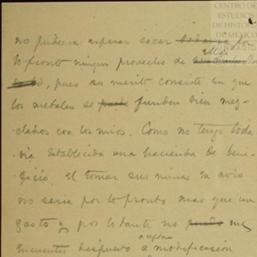 CENTRO DE
ESTUDIOS
DE HISTORIA
DE MEXICO
no pudiera esperar sacar por
lo pronto ningun provecho de ellas
pues su merito consiste en que
los metales se funden bien mez-
clados con los mios. Como no tengo toda-
via establecida una hacienda de bene-
ficio. El tomar sus minas en avio
no seria por lo pronto mas que un
gasto y por lo tanto no me
encuentro dispuesto a modificación